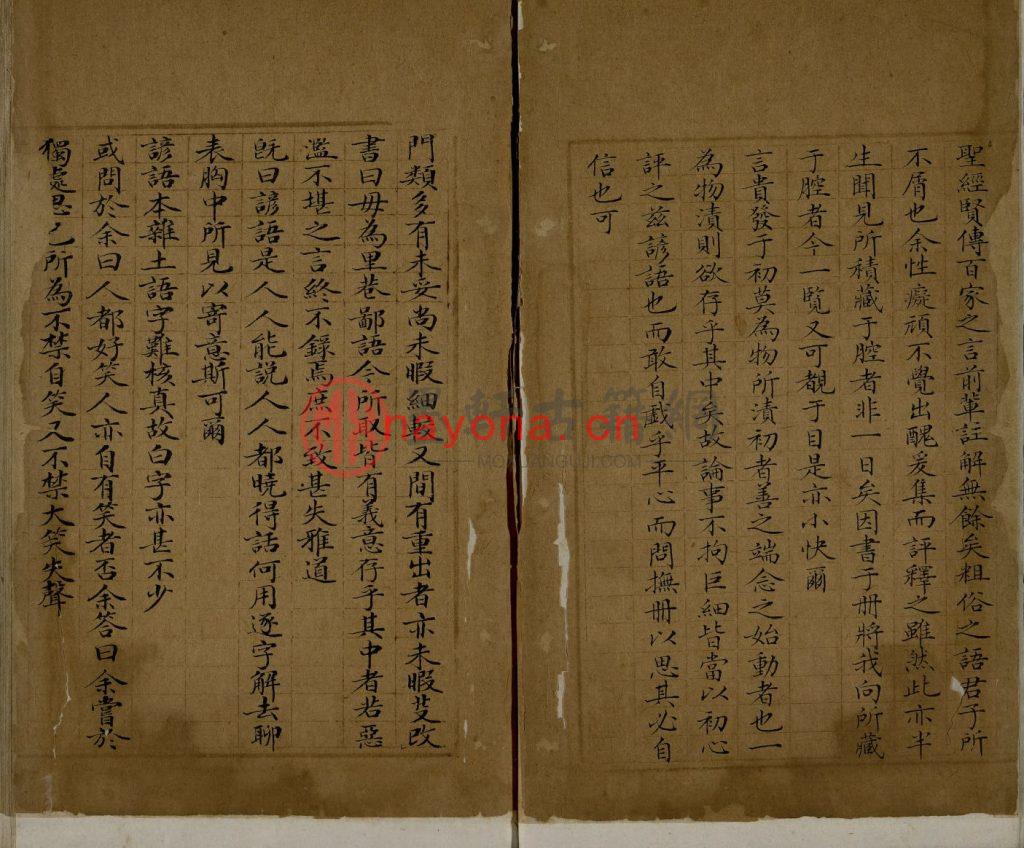 聖經賢傳百家之言前輩註解無餘矣粗俗之語君子所
不屑也余性癡頑不覺出醜爰集而評釋之雖然此亦半
生聞見所積藏于腔者非一日矣因書于冊將我向所藏
于腔者今一覽又可覩于目是亦小快爾
言貴發于初莫為物所漬初者善之端念之始動者也一
為物漬則欲存乎其中矣故論事不拘巨細皆當以初心
評之茲諺語也而敢自戱乎平心而問撫冊以思其必自
信也可
門類多有未妥尚未暇細較又間有重出者亦未暇芟改
書曰毋為里巷鄙語今所取皆有義意存乎其中者若惡
濫不堪之言終不錄焉庶不致甚失雅道
旣曰諺語是人人能説人人都曉得話何用逐字解去聊
表胸中所見以寄意斯可爾
諺語本雜土語字難核真故白字亦甚不少
或問於余曰人都好笑人亦自有笑者否余答曰余嘗於
獨處思己所為不禁自笑又不禁大笑失聲
nayona.cn